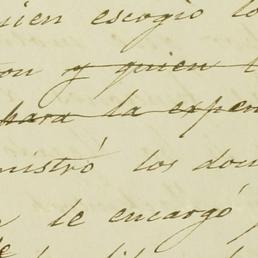 quien escogió lo
y quien
para la expen
nistró los dou
le encargó